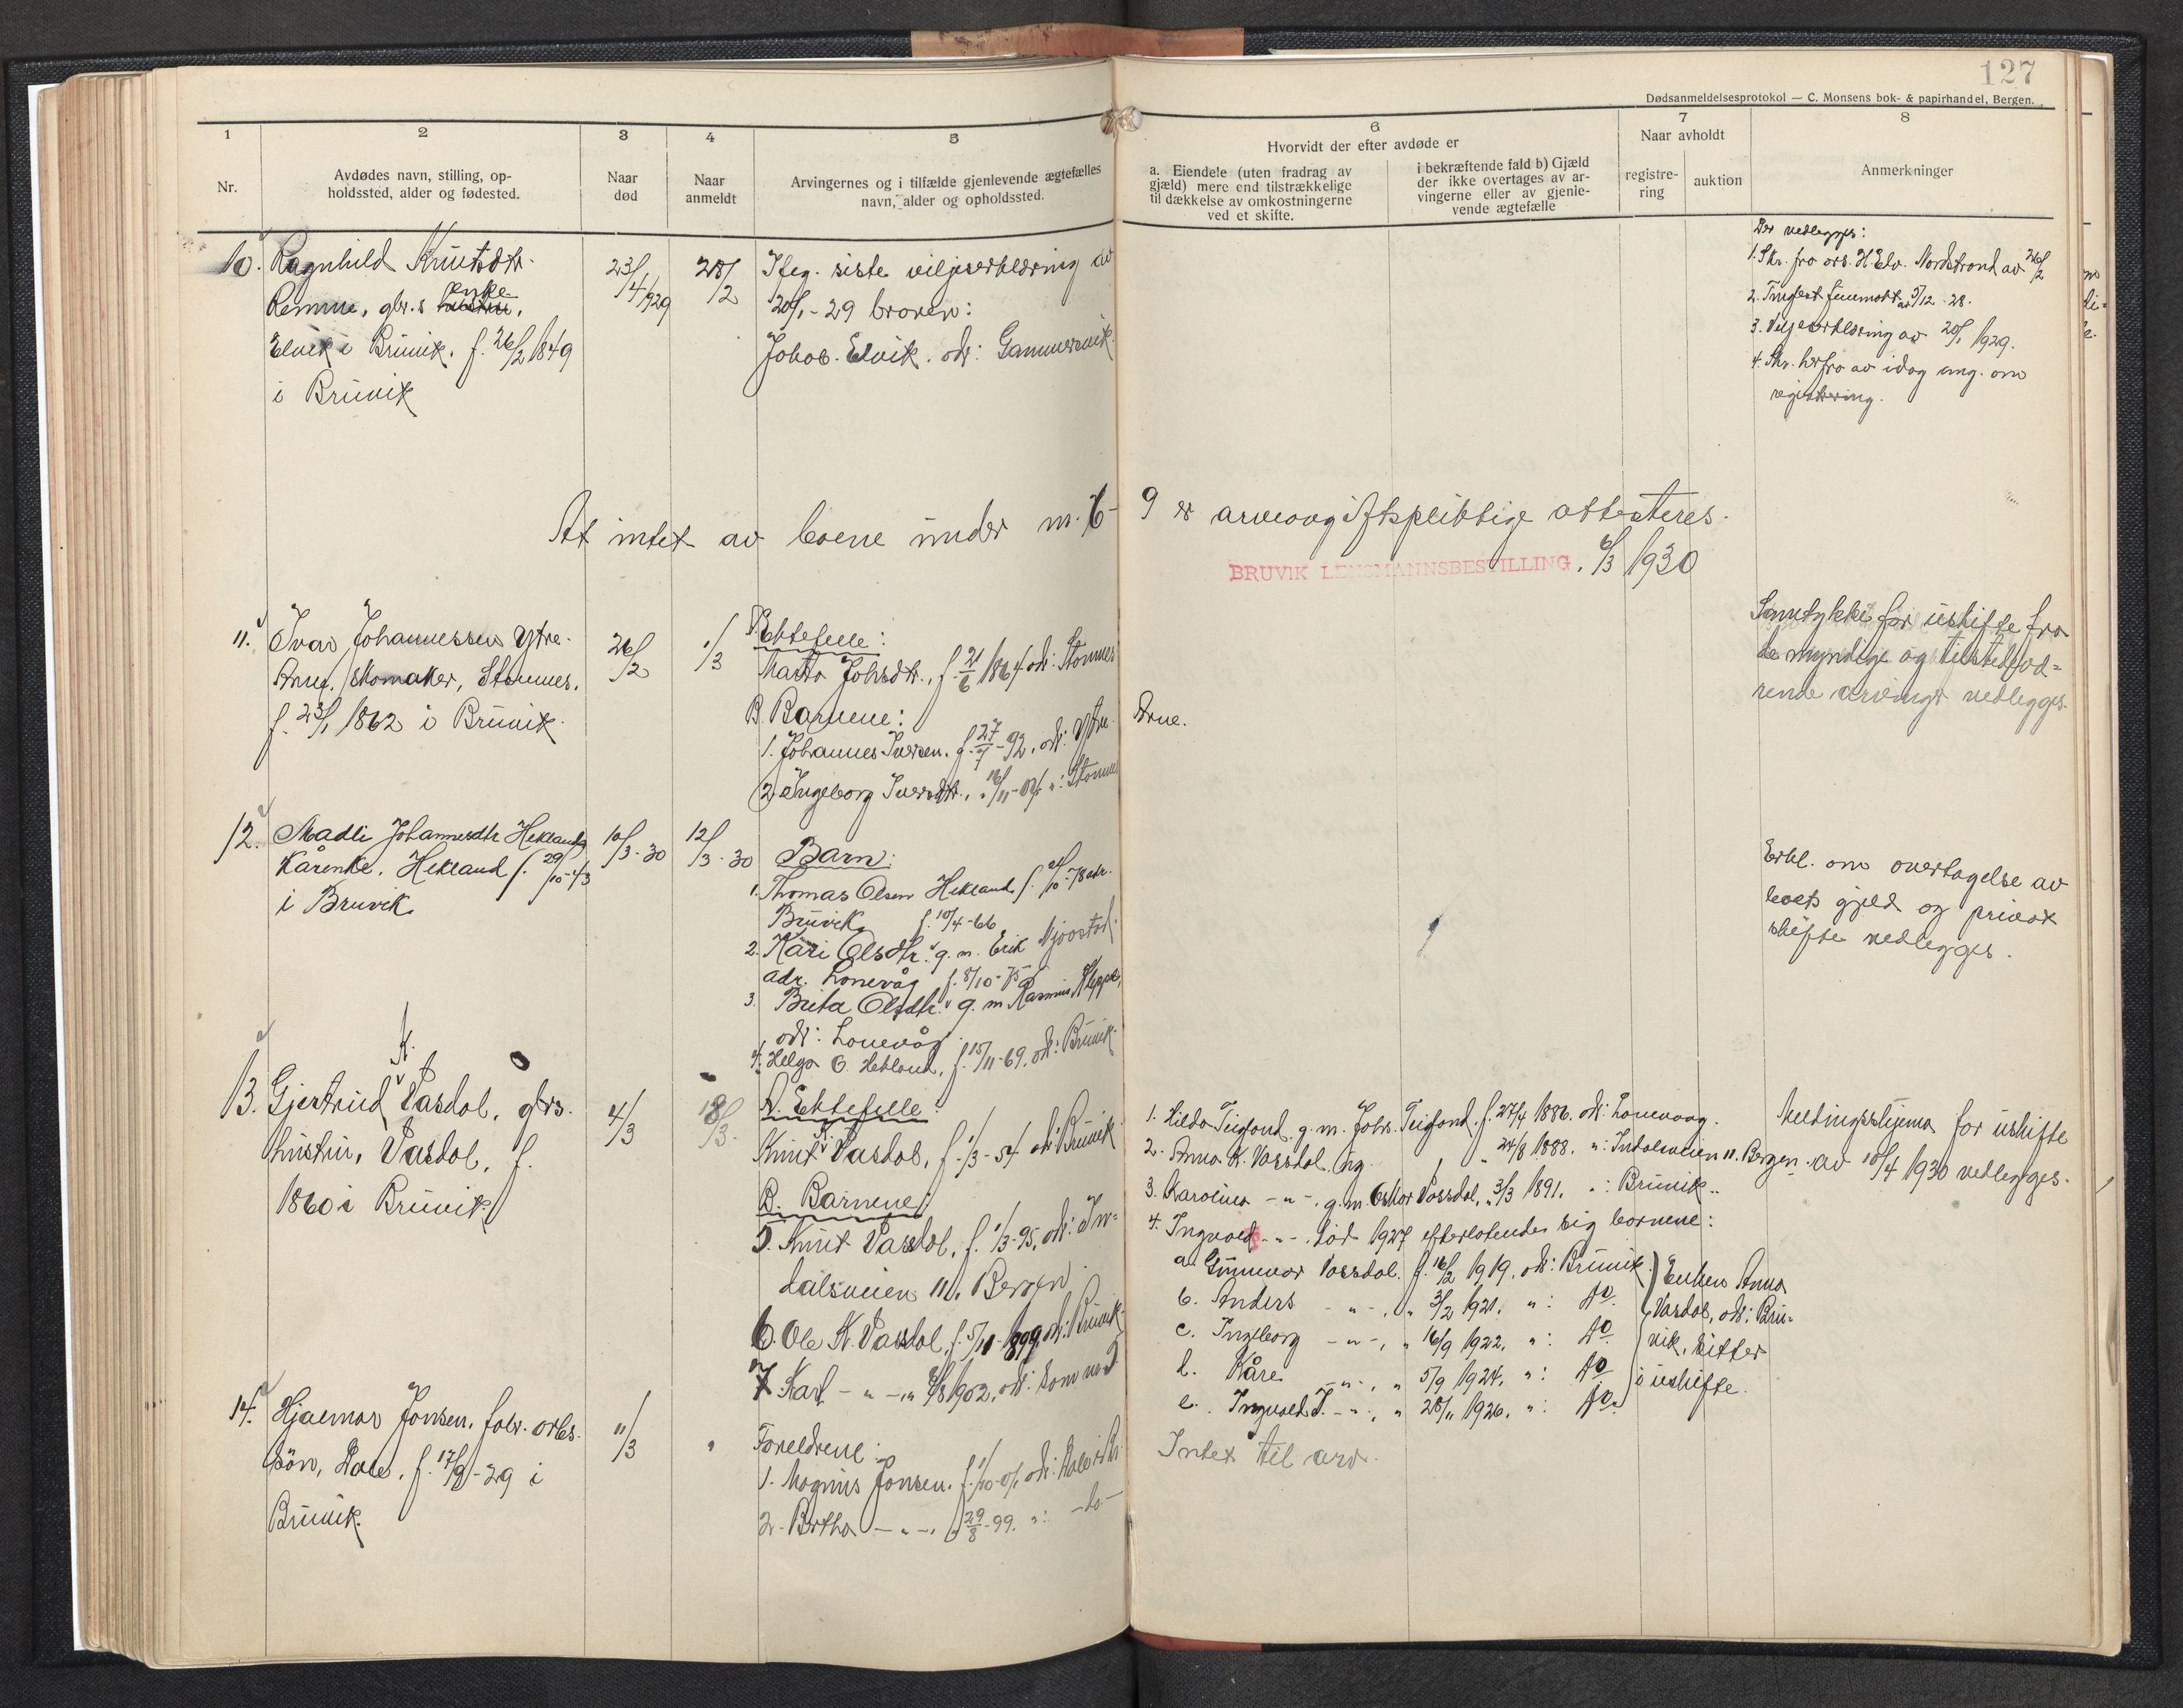 127
Dødsanmeldelsesprotokol — C. Monsens bok- & papirhandel, Bergen.
1
2
3
4
5
6
7
8
Nr.
Avdødes navn, stilling, op-
holdssted, alder og fødested.
Naar
død
Naar
anmeldt
Arvingernes og i tilfælde gjenlevende ægtefælles
navn, alder og opholdssted.
Hvorvidt der efter avdøde er
a. Eiendele (uten fradrag av
gjæld) mere end tilstrækkelige
til dækkelse av omkostningerne
ved et skifte.
i bekræftende fald b) Gjæld
der ikke overtages av ar-
vingerne eller av gjenle-
vende ægtefælle
Naar avholdt
registre-
ring
auktion
Anmerkninger
10. Ragnhild Knutsdtr.
Remme, gbr.s enke
Elvik i Bruvik. f. 26/2 1849
i Bruvik
23/1 1929
28/2
Ifeg. siste viljeserklæring av
20/1-29 broren:
Jakob Elvik. adr: Gammersvik
Der vedlegges:
1. Skr. fra ors. H. Elv. Nordstrand av 26/2
2. Tinglest av 5/12-28.
3. Viljeserklæring av 20/1 1929.
4. Skr. herfra av idag ang. om
registrering.
At intet av boene under nr. 6-9 er arveavgiftspliktige attesteres.
BRUVIK LENSMANNSBESTILLING, 6/3 1930
11. Ivar Johannessen Ytre-
Arne, skomaker, Stamnes.
f. 23/1 1862 i Bruvik.
26/2
1/3
Ektefelle:
Marta Johsdtr., f. 21/6 1864 adr: Stamnes
B. Barnene:
1. Johannes Iversen. f. 27/7-92. adr: Ytre Arne.
2. Ingeborg Iversdtr., " 16/11-04 ": Stamnes
Samtykke for uskifte fra
de myndige og tilstedevæ-
rende arvinger vedlegges.
12. Madli Johannesdtr Hekland
Kårenke, Hekland f. 29/10-43
i Bruvik
10/3-30
12/3-30
Barn:
1. Thomas Olsen Hekland f. /10-78 adr.
Bruvik f. 10/4-66
2. Kari Olsdtr. g. m. Erik Mjøstad
adr. Lonevåg f. 8/10-75
3. Brita Olsdtr. g. m. Rasmus Kleppe,
adr: Lonevåg
4. Helge O. Hekland, f. 15/11-69, adr: Bruvik
Erkl. om overtagelse av
boets gjeld og privat
skifte vedlegges.
13. Gjertrud K. Vasdal, gbrs.
hustru, Vasdal, f.
1860 i Bruvik
4/3
18/3
A. Ektefelle:
Knut K. Vasdal, f. 1/3-54 adr: Bruvik
B. Barnene:
5. Knut Vassdal, f. 1/3-95, adr: In-
dalsveien 11, Bergen
6. Ole K. Vassdal, f. 5/11-1899, adr: Bruvik
7. Karl - " -, " 8/8 1902, adr: som nr 5
1. Hilda Teigland. g. m. Johs. Teigland. f. 27/4 1886. adr: Lonevaag.
2. Anna K. Vassdal ug. " 24/8 1888. ": Indalsveien 11. Bergen
3. Karolina - " -, g. m. Oskar Vassdal, " 3/3 1891. ": Bruvik.
4. Ingvald - " - død 1927 efterlatende sig barnene:
a. Gunnvor Vassdal. f. 16/2 1919, adr: Bruvik
b. Anders - " -, " 3/2 1921. ": do
c. Ingeborg - " -, " 16/9 1922. ": do
d. Kåre - " -, " 5/9 1924. ": do
e. Ingvald I. - " -, " 28/11 1926. ": do
Enken Anna
Vasdal, adr: Bru-
vik, sitter
i uskifte.
Meldingsskjema for uskifte
av 10/4 1930 vedlegges.
14. Hjalmar Jonsen, fabr. arbs.
søn, Dale, f. 17/9-29 i
Bruvik.
11/3
"
Foreldrene:
1. Magnus Jonsen. f. 1/10-01, adr: Dale i Br
2. Bertha - " -, " 29/8-99. ": - do -
Intet til arv.